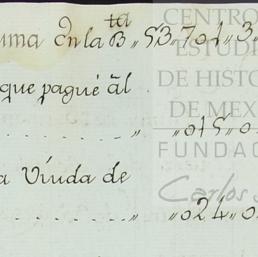 uma en la Bta „ 53,704„3„
que pagué al
„ „ 015„0
a Viuda de
„ „ 024„0
CENTRO
ESTUDI
DE HISTO
DE MEX
FUNDAC
Carlos S